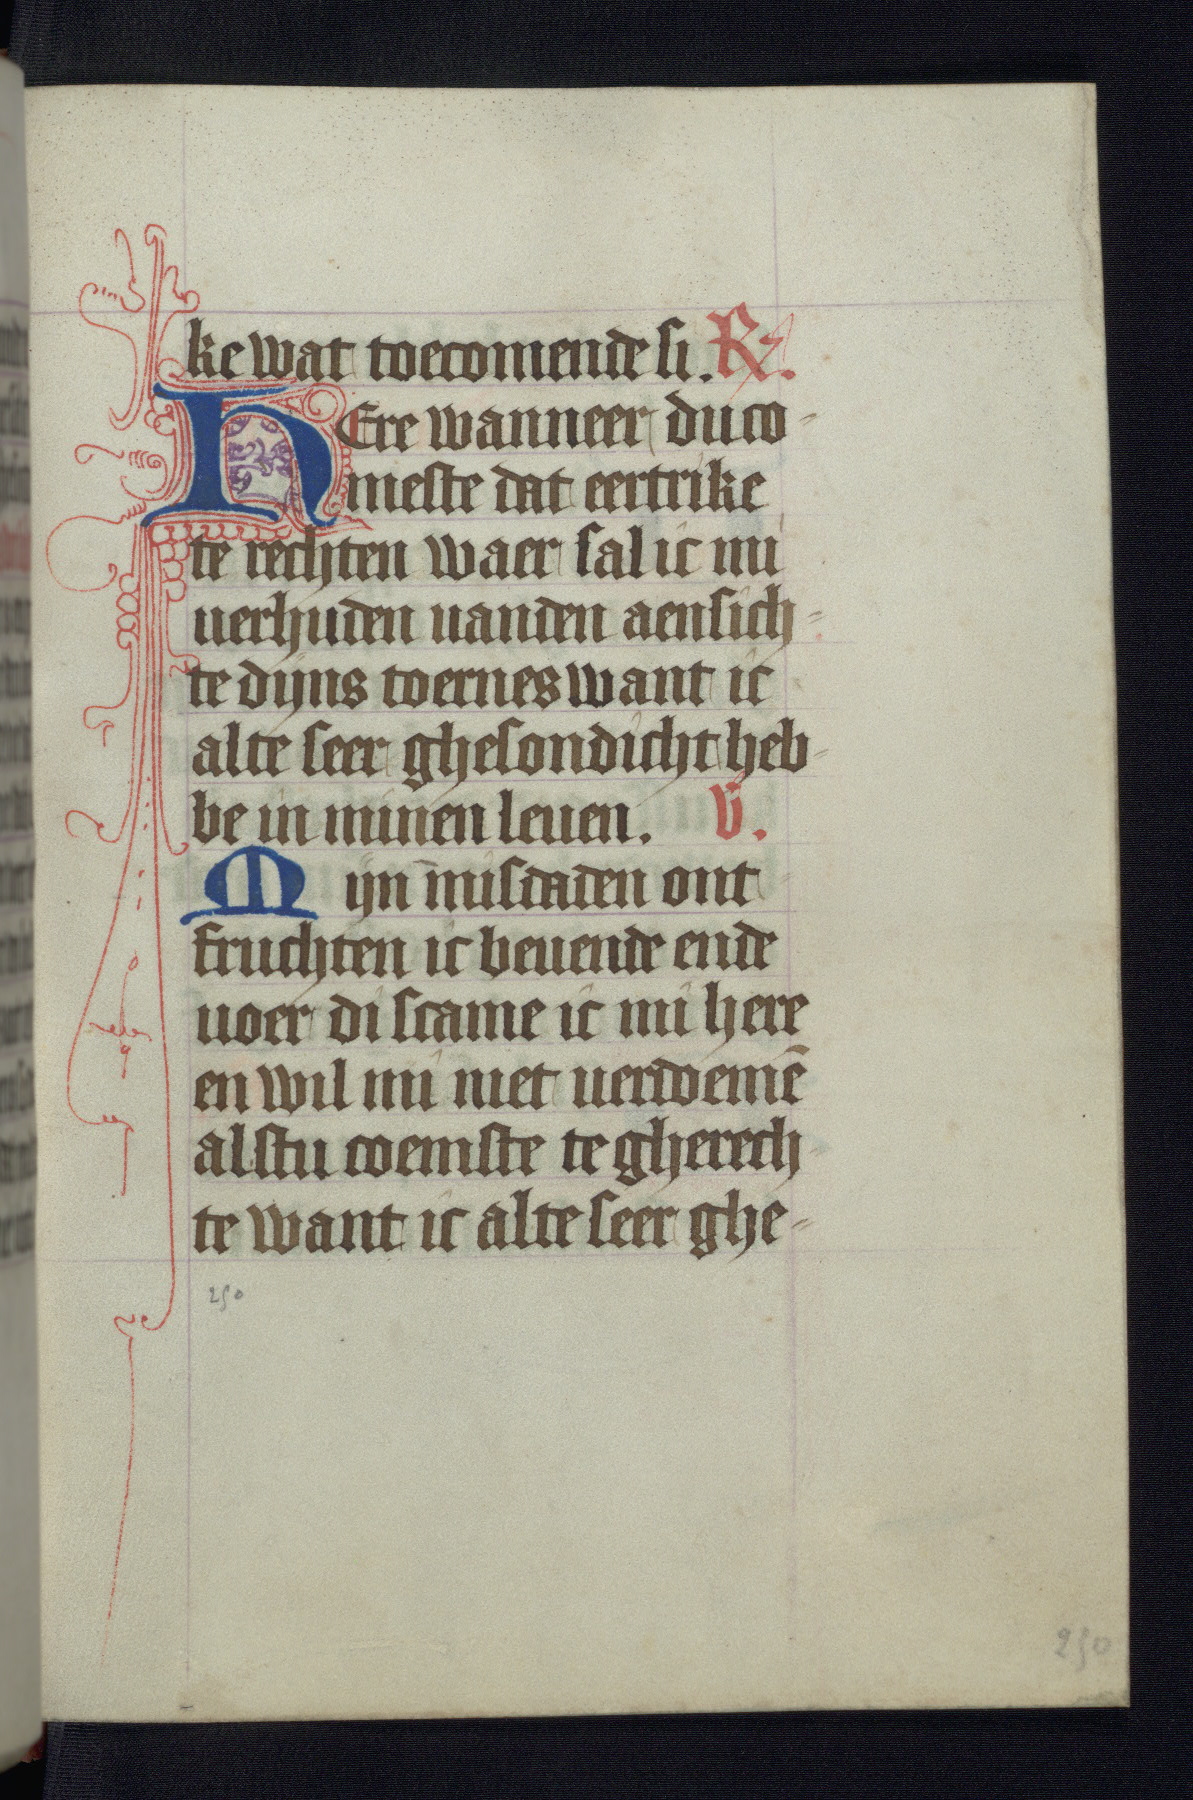 ke wat toecomende si. R.
HEre wanneer du co-
meste dat eertrike
te rechten waer sal ic mi
uerhuden uanden aensich-
te dijns toernes want ic
alte seer ghesondicht heb-
be in minen leuen. V.
Mijn misdaden ont
fruchten ic beuende ende
uoer di scame ic mi here
en wil mi niet uerdoemē
alstu coemste te gherech
te want ic alte seer ghe-
250
250